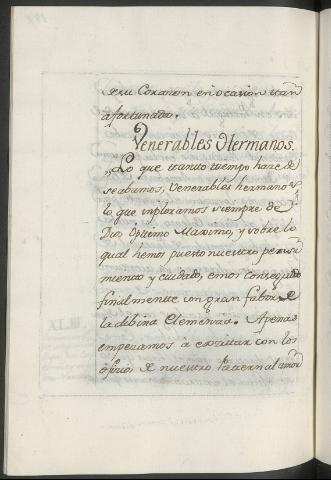 de su Corazon en ocasion tan
afortunada.
Venerables Hermanos.
„Lo que tanto tiempo hace de
seabamos, Venerables hermanos
lo que ynploramos siempre de
Dios Optimo Maximo, y sobre lo
qual hemos puesto nuestro pensa
miento y cuidado, emos conseguido
finalmente con gran fabor de
la dibina Clemencia. Apenas
empezamos à exercitar con los
oficios de nuestro Paternal amor